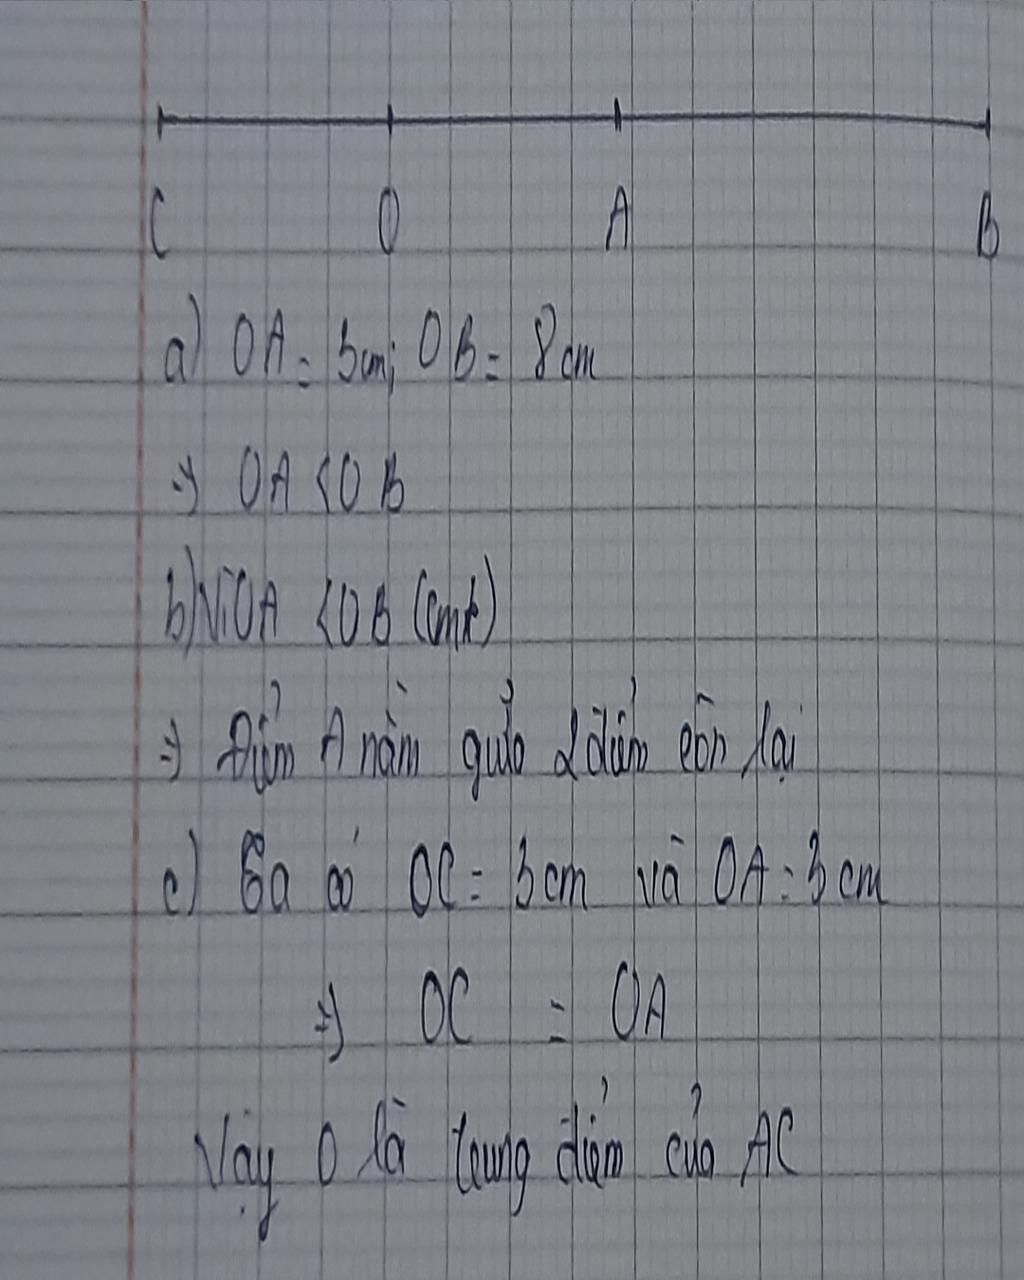 C O A B
a) OA = 3cm; OB = 8cm
=> OA < OB
b) Vì OA < OB (cmt)
=> Điểm A nằm giữa 2 điểm còn lại
c) Ta có OC = 3cm và OA = 3cm
=> OC = OA
Vậy O là trung điểm của AC